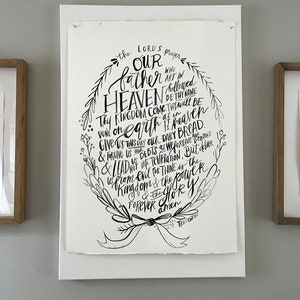 the LORD'S prayer
OUR
father WHO
ART IN
HEAVEN hallowed
BE THY NAME
THY KINGDOM COME THY WILL BE
DONE on earth AS IT
IS IN HEAVEN
GIVE US THIS DAY OUR DAILY BREAD
& FORGIVE US OUR DEBTS AS WE FORGIVE OUR DEBTORS
& LEAD US NOT INTO TEMPTATION BUT deliver
US from evil FOR THINE IS THE
kingdom & the power
& the glory
FOREVER amen